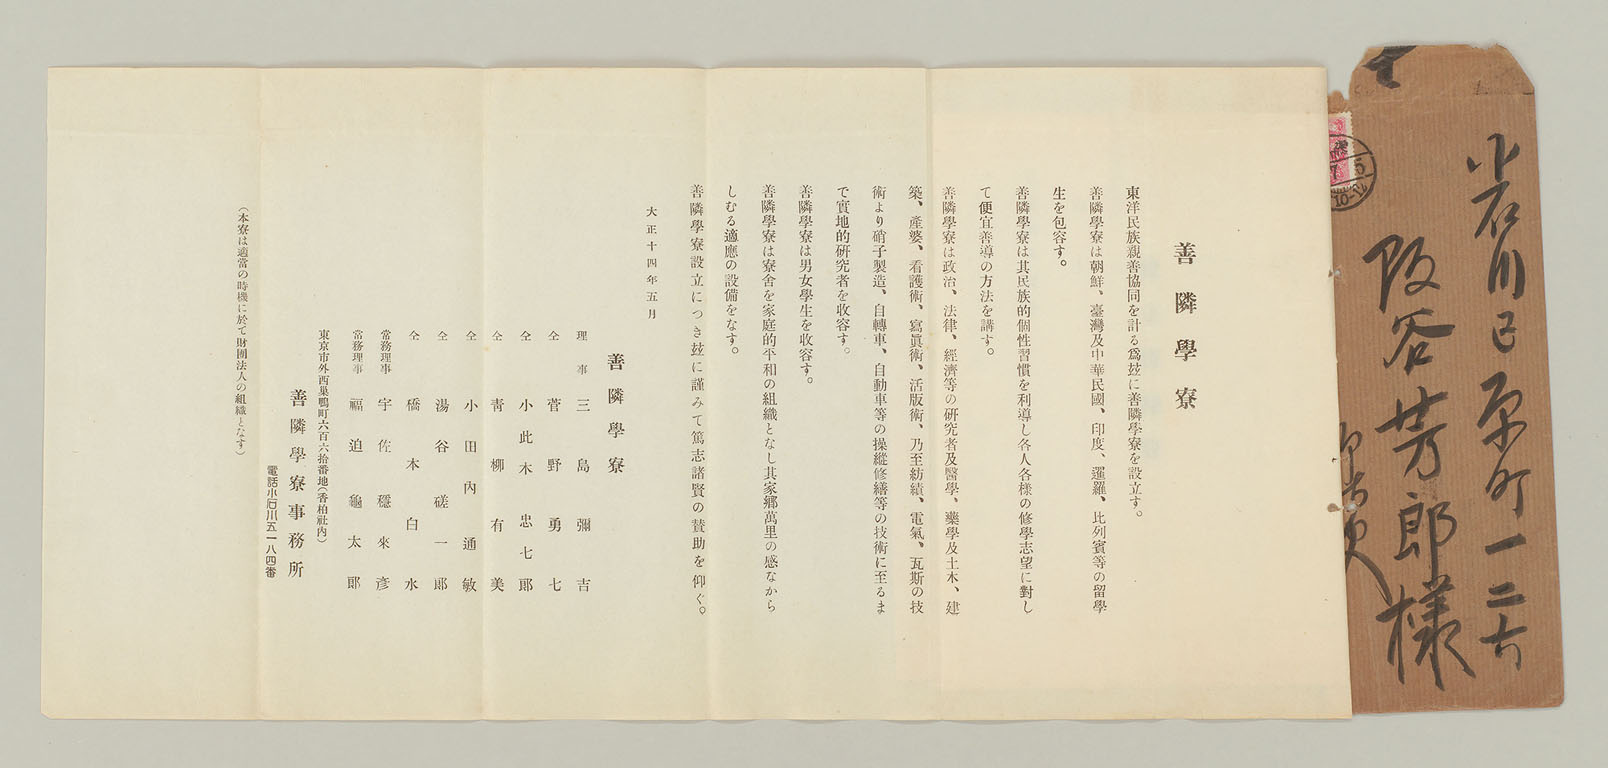 小石川区原町一二六
阪谷芳郎様
善隣學寮
東洋民族親善協同を計る爲玆に善隣學寮を設立す。
善隣學寮は朝鮮、臺灣及中華民國、印度、暹羅、比列賓等の留學
生を包容す。
善隣學寮は其民族的個性習慣を利導し各人各樣の修學志望に對し
て便宜善導の方法を講す。
善隣學寮は政治、法律、經濟等の研究者及醫學、藥學及土木、建
築、產婆、看護術、寫眞術、活版術、乃至紡績、電氣、瓦斯の技
術より硝子製造、自轉車、自動車等の操縱修繕等の技術に至るま
で實地的研究者を收容す。
善隣學寮は男女學生を收容す。
善隣學寮は寮舍を家庭的平和の組織となし其家鄕萬里の感なから
しむる適應の設備をなす。
善隣學寮設立につき玆に謹みて篤志諸賢の賛助を仰ぐ。
大正十四年五月
善隣學寮
理事 三島彌吉
仝 菅野勇七
仝 小此木忠七郞
仝 靑柳有美
仝 小田內通敏
仝 湯谷磋一郞
仝 橋本白水
常務理事 宇佐穩來彥
常務理事 福迫龜太郞
東京市外西巢鴨町六百六拾番地(香柏社內)
善隣學寮事務所
電話小石川五一八四番
(本寮は適當の時機に於て財團法人の組織となす)